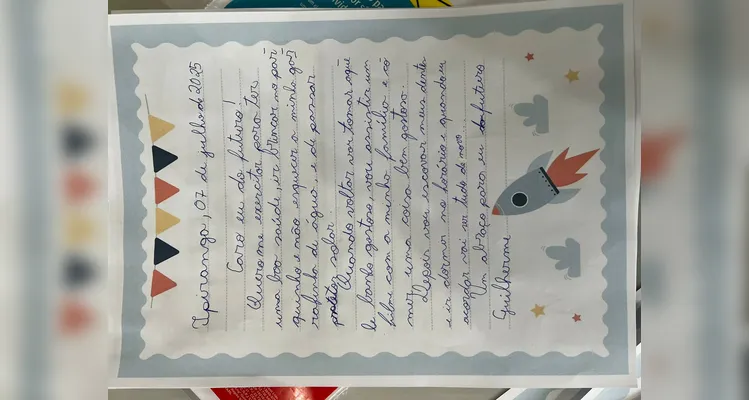 Ipiranga, 07 de julho de 2025
Caro eu do futuro!
Quero me exercitar para ter
uma boa saúde, ir brincar no par-
quinho e não esquecer a minha gar-
rafinha de água, e de passar
protetor solar.
Quando voltar vou tomar aque-
le banho gostoso, vou assistir um
filme com a minha família e co-
mer uma coisa bem gostosa.
Depois vou escovar meus dentes
e ir dormir no horário e quando eu
acordar vai ser tudo de novo.
Um abraço para eu do futuro
Guilherme